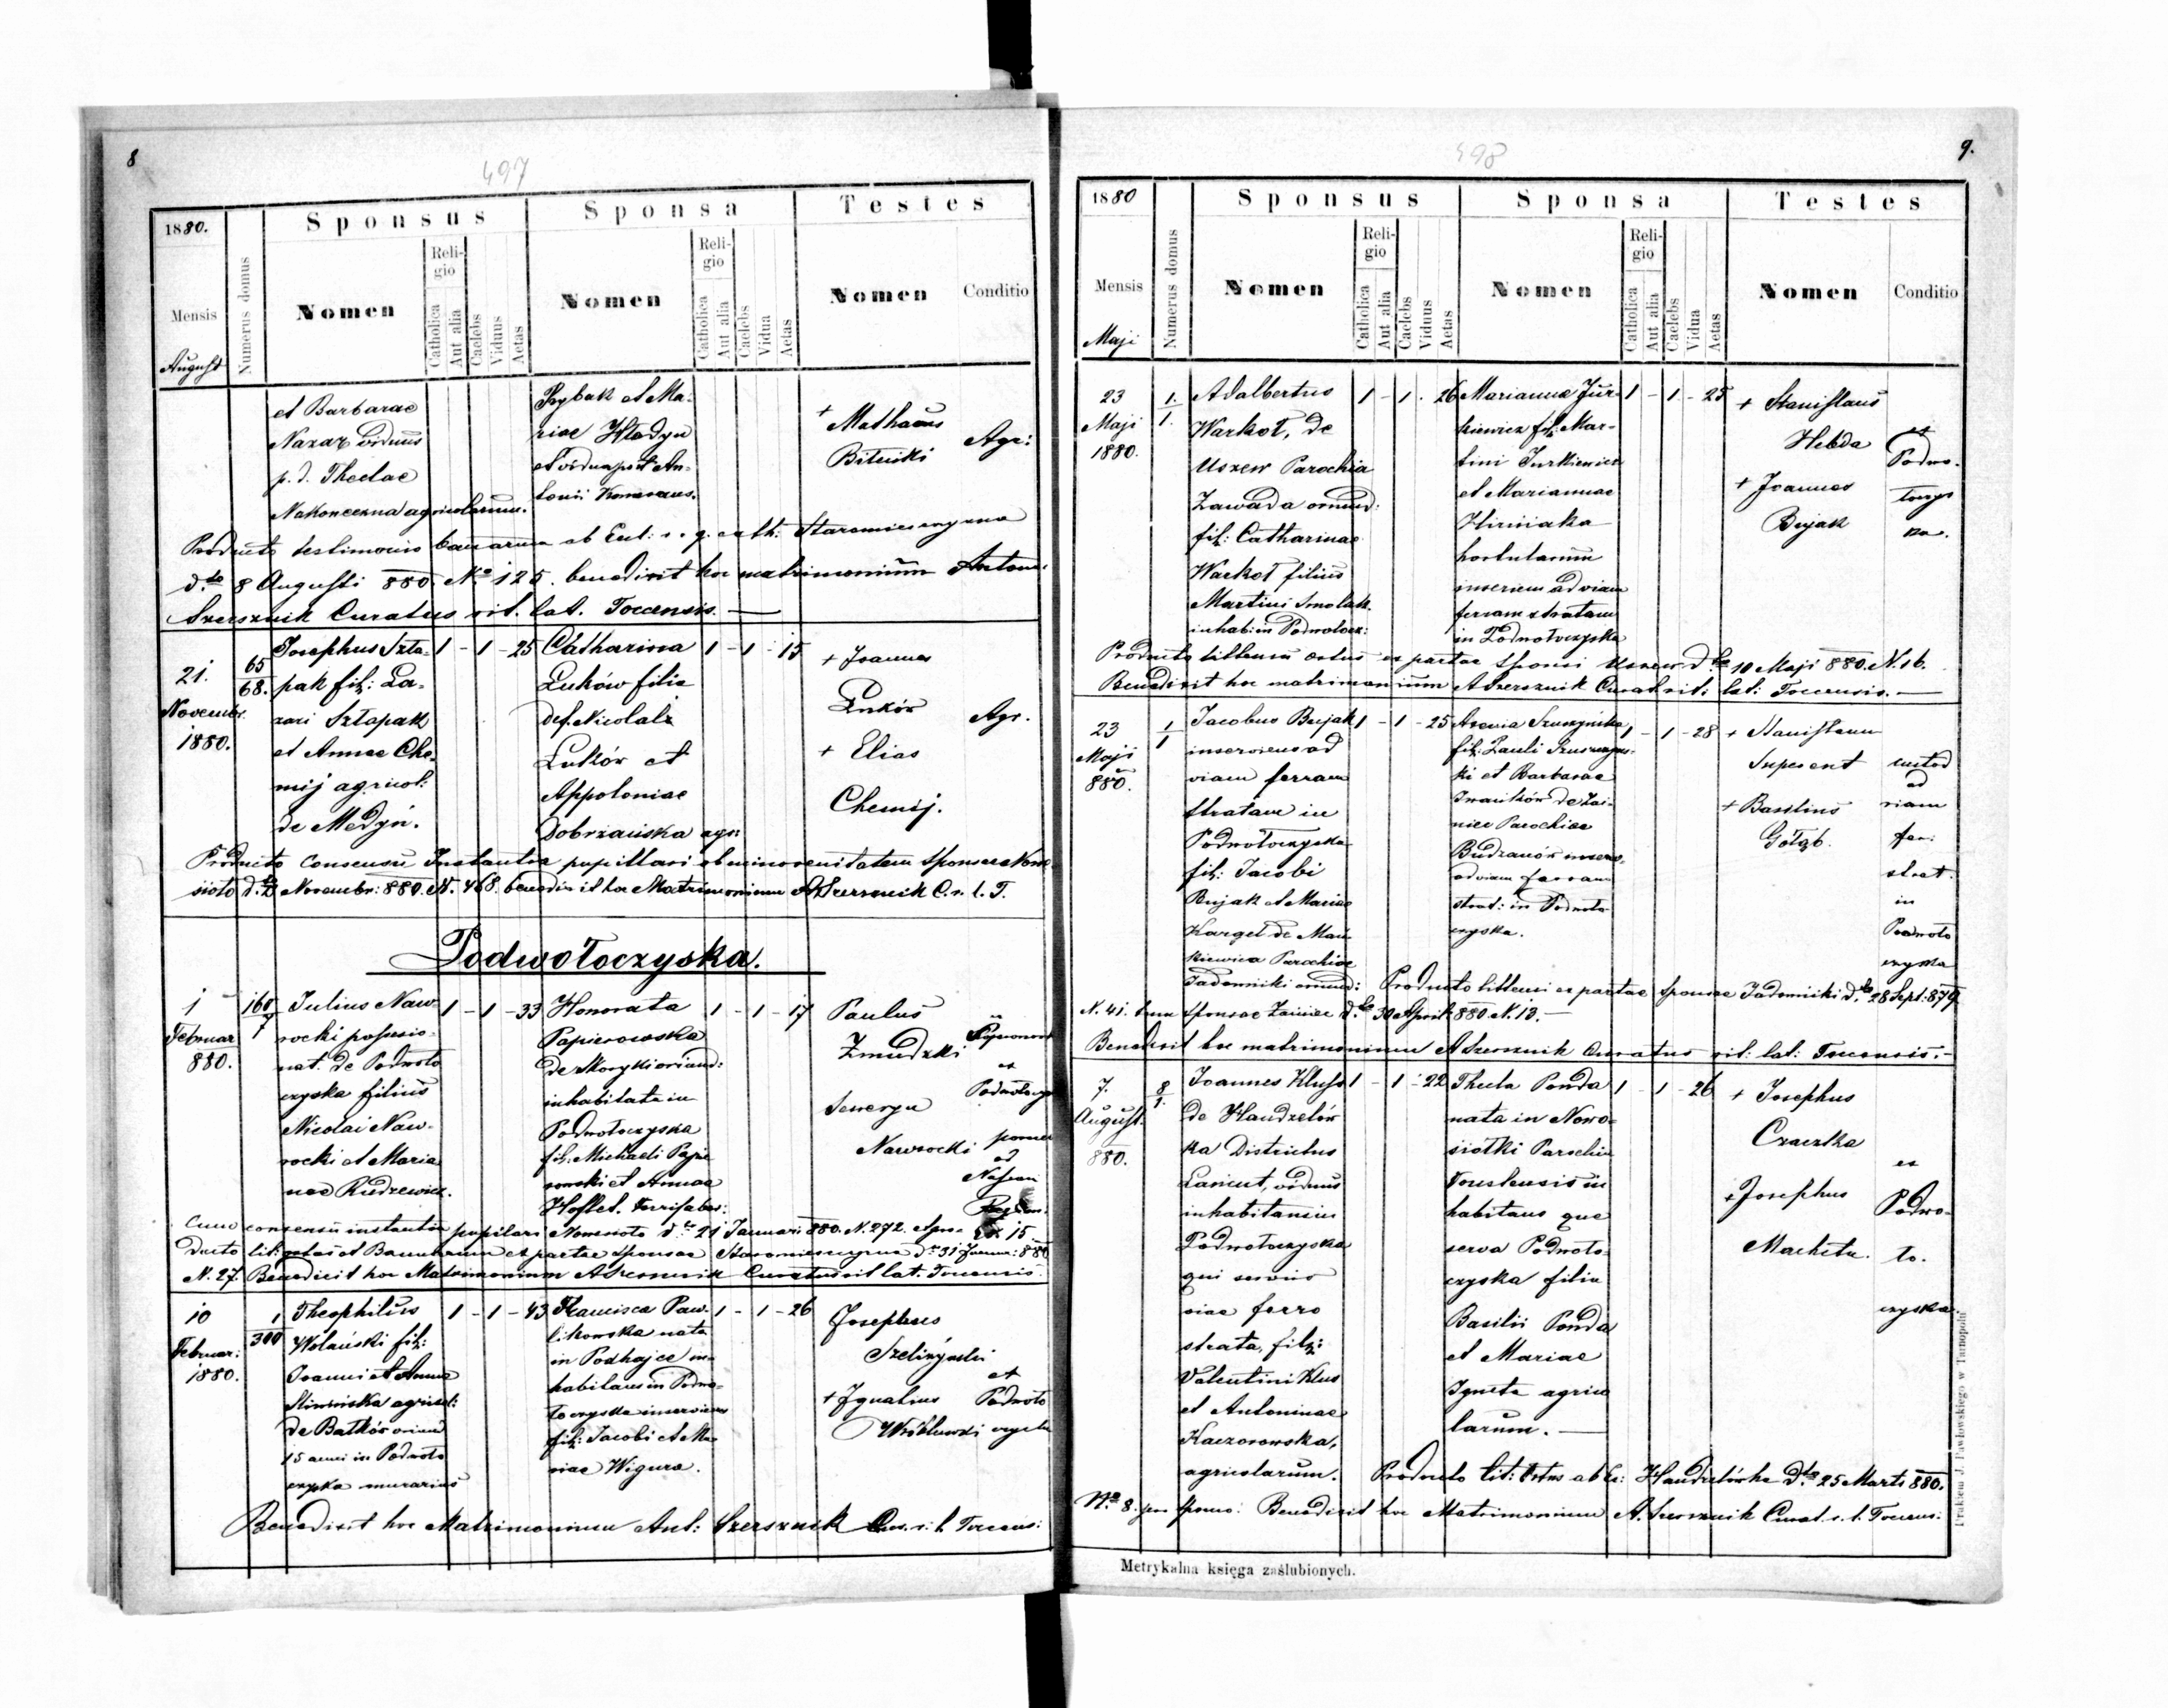 8
497
1880.
Mensis
August
Numerus domus
Sponsus
Nomen
Religio
Catholica
Aut alia
Caelebs
Viduus
Aetas
Sponsa
Nomen
Religio
Catholica
Aut alia
Caelebs
Vidua
Aetas
Testes
Nomen
Conditio
et Barbarae
Nazar viduus
p. d. Theclae
Nakoneczna agricolarum.
Rybak et Ma-
riae Hladyn
et vidua post An-
tonii
+ Mathaeus
Bitenski
Agr:
Producto testimonio bannarum ab Eccl: r. g. cath: Staromiesczyzna
dto 8 Augusti 880. No 125. benedixit hoc matrimonium Antoni
Szersznik Curatus rit. lat. Toccensis.
21.
Novembr.
1880.
65
68.
Josephus Szta-
pak fil: La-
zari Sztapak
et Annae Che-
mij agricol:
de Medyn.
1 - 1 - 25
Catharina
Luków filia
def. Nicolai
Luków et
Appoloniae
Dobrzańska agr:
1 - 1 - 15
+ Joannes
Luków
+ Elias
Chemij.
Agr.
Producto consensu Instantiae pupillari ob minorenitatem Sponsae Nowe
sioto Novembr: 880. N. 468. benedixit hoc Matrimonium A Szersznik C. r. l. T.
Podwołoczyska.
1
Februar
880.
160
7
Julius Naw-
rocki possesio-
nat. de Podwoło
czyska filius
Nicolai Naw-
rocki et Maria
nae Rudzewicz.
1 - 1 - 33
Honorata
Papierowska
de Skoryki oriund:
inhabitata in
Podwołoczyska
fil: Michaeli Papie
rowski et Annae
1 - 1 - 17
Paulus
Zmudzki
Seweryn
Nawrocki
Cum consensu instantiae pupilari Nowesioto dto 21 Januari 880. N. 272. et pro-
ducto lit: ortus et Bannorum ex partae Sponsae Staromiesczyzna dto 31 Januar: 880
N. 27. Benedixit hoc Matrimonium A Szersznik Curatus rit lat. Toccensis.
10
Februar:
1880.
1
300
Theophilus
Wolański fil:
Joanni et Annae
Sliwińska agricol:
de Batków oriund
15 anni in Podwoło
czyska murarius
1 - 1 - 43
Francisca Paw-
likowska nata
in Podhajce in-
habitans in Podwo-
łoczyska inserviens
fil: Jacobi et Ma
riae Wigura.
1 - 1 - 26
Josephus
Szeliżyński
+ Ignatius
Wróblewski
ex
Podwoło
czyska
Benedixit hoc Matrimonium Ant: Szersznik Cur. r. l. Toccens:
9.
498
1880
Mensis
Maji
Numerus domus
Sponsus
Nomen
Religio
Catholica
Aut alia
Caelebs
Viduus
Aetas
Sponsa
Nomen
Religio
Catholica
Aut alia
Caelebs
Vidua
Aetas
Testes
Nomen
Conditio
23
Maji
1880.
1.
1.
Adalbertus
Warkot, de
Uszew Parochia
Zawada oriund:
fil: Catharinae
Warkot filius
Martini Smolak.
inhab: in Podwołocz:
1 - 1 - 26
Marianna Jur-
kiewicz fil: Mar-
tini Jurkiewicz
et Mariannae
Hirniaka
hortulanum
inserviens ad viam
ferram stratam
in Podwołoczyska
1 - 1 - 25
+ Stanislaus
Hebda
+ Joannes
Bujak
ex
Podwo-
łoczys
ka.
Producto litteris ortus ex partae Sponsi Uszew dto 10 Maji 880. N. 16.
Benedixit hoc matrimonium A Szersznik Curat rit: lat: Toccensis.
23
Maji
880.
1
1
Jacobus Bujak
inserviens ad
viam ferram
stratam in
Podwołoczyska
fil: Jacobi
Bujak et Mariae
Kargel de Mań
kiewica Parochiae
Jadowniki oriund:
1 - 1 - 25
Axenia Szuszyńska
fil: Pauli Szuszyńs-
ki et Barbarae
Iwańków de Zai-
nice Parochiae
Budzanów inserv.
ad viam ferram
strat: in Podwoło
czyska.
1 - 1 - 28
+ Stanislaus
Supesent
+ Basilius
Gołąb.
custod
ad
viam
fer:
strat.
in
Podwoło
czyska
Producto litteris ex partae Sponsae Jadowniki dto 28 Sept: 879
N. 41. tum Sponsae Zainice dto 30 April 880. N. 13.
Benedixit hoc matrimonium A Szersznik Curatus rit: lat: Toccensis.
7.
August.
880.
8
1.
Joannes Kluss
de Handzelów
ka Districtus
Lancut, viduus
inhabitans in
Podwołoczyska
qui servus
viae ferro
strata, fil:
Valentini Klus
et Antoninae
Kaczorowska,
agricolarum.
1 - 1 - 22
Thecla Ponda
nata in Nowo-
siołki Parochia
Toustensis in
habitans que
serva Podwoło-
czyska filia
Basilii Ponda
et Mariae
Igneta agrico
larum.
1 - 1 - 26
+ Josephus
Czaczka
+ Josephus
Macheta.
ex
Podwo-
ło-
czyska.
Producto lit: Ortus ab Ec: Handzlówka dto 25 Marti 880.
No 8. pro Sponso. Benedixit hoc Matrimonium A. Szersznik Curat. r. l. Toccens:
Metrykalna księga zaślubionych.
Drukiem J. Pawłowskiego w Tarnopolu